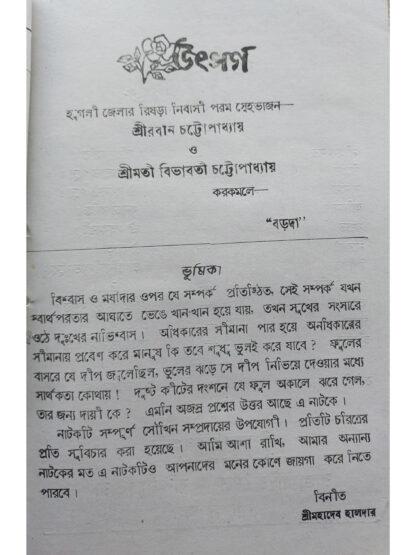 উৎসর্গ
হুগলী জেলার রিষড়া নিবাসী পরম স্নেহভাজন—
শ্রীরবীন চট্টোপাধ্যায়
ও
শ্রীমতী বিভাবতী চট্টোপাধ্যায়
করকমলে—
“বড়দা”
ভূমিকা
বিশ্বাস ও মর্যাদার ওপর যে সম্পর্ক প্রতিষ্ঠিত, সেই সম্পর্ক যখন
স্বার্থপরতার আঘাতে ভেঙে খান-খান হয়ে যায়, তখন সুখের সংসারে
ওঠে দুঃখের নাভিশ্বাস। অধিকারের সীমানা পার হয়ে অনধিকারের
সীমানায় প্রবেশ করে মানুষ কি তবে শুধু ভুলই করে যাবে? ফুলের
বাসরে যে দীপ জ্বলেছিল, ভুলের ঝড়ে সে দীপ নিভিয়ে দেওয়ার মধ্যে
সার্থকতা কোথায়! দুষ্ট কীটের দংশনে যে ফুল অকালে ঝরে গেল,
তার জন্য দায়ী কে? এমনি অজস্র প্রশ্নের উত্তর আছে এ নাটকে।
নাটকটি সম্পূর্ণ সৌখিন সম্প্রদায়ের উপযোগী। প্রতিটি চরিত্রের
প্রতি সুবিচার করা হয়েছে। আমি আশা রাখি, আমার অন্যান্য
নাটকের মত এ নাটকটিও আপনাদের মনের কোণে জায়গা করে নিতে
পারবে।
বিনীত
শ্রীমহাদেব হালদার